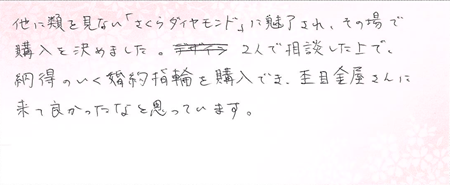 他に類を見ない「さくらダイヤモンド」に魅了され、その場で
購入を決めました。2人で相談した上で、
納得のいく婚約指輪を購入でき、杢目金屋さんに
来て良かったなと思っています。